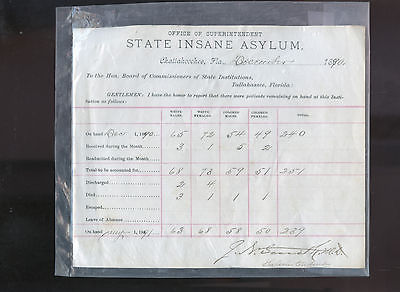 OFFICE OF SUPERINTENDENT
STATE INSANE ASYLUM,
Chattahoochee, Fla., December 1890.
To the Hon. Board of Commissioners of State Institutions,
Tallahassee, Florida:
GENTLEMEN: I have the honor to report that there were patients remaining on hand at this Institution as follows:
WHITE MALES. WHITE FEMALES. COLORED MALES. COLORED FEMALES. TOTAL.
On hand Dec 1, 1890 65 72 54 49 240
Received during the Month 3 1 5 2
Readmitted during the Month
Total to be accounted for 68 73 59 51 251
Discharged 2 4
Died 3 1 1 1
Escaped
Leave of Absence
On hand 1, 63 68 58 50 239